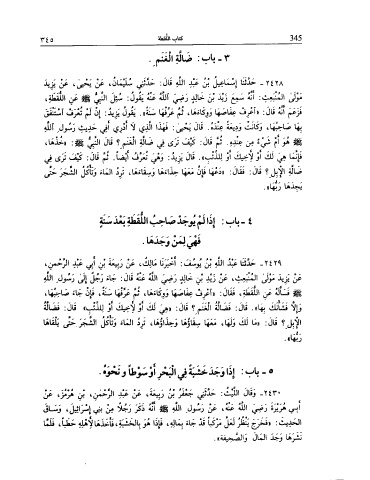 ٣٤٥ كتاب اللقطة 345
٣ - باب: ضَالَّةِ الْغَنَمِ.
٢٤٢٨ - حَدَّثَنَا إِسْمَاعِيلُ بْنُ عَبْدِ اللَّهِ قَالَ: حَدَّثَنِي سُلَيْمَانُ، عَنْ يَحْيَى، عَنْ يَزِيدَ
مَوْلَى الْمُنْبَعِثِ: أَنَّهُ سَمِعَ زَيْدَ بْنَ خَالِدٍ رَضِيَ اللَّهُ عَنْهُ يَقُولُ: سُئِلَ النَّبِيُّ ﷺ عَنِ اللُّقَطَةِ،
فَزَعَمَ أَنَّهُ قَالَ: «اعْرِفْ عِفَاصَهَا وَوِكَاءَهَا، ثُمَّ عَرِّفْهَا سَنَةً». يَقُولُ يَزِيدُ: إِنْ لَمْ تُعْرَفِ اسْتَنْفَقَ
بِهَا صَاحِبُهَا، وَكَانَتْ وَدِيعَةً عِنْدَهُ. قَالَ يَحْيَى: فَهَذَا الَّذِي لَا أَدْرِي أَفِي حَدِيثِ رَسُولِ اللَّهِ
ﷺ هُوَ أَمْ شَيْءٌ مِنْ عِنْدِهِ. ثُمَّ قَالَ: كَيْفَ تَرَى فِي ضَالَّةِ الْغَنَمِ؟ قَالَ النَّبِيُّ ﷺ: «خُذْهَا،
فَإِنَّمَا هِيَ لَكَ أَوْ لِأَخِيكَ أَوْ لِلذِّئْبِ». قَالَ يَزِيدُ: وَهِيَ تُعَرَّفُ أَيْضاً. ثُمَّ قَالَ: كَيْفَ تَرَى فِي
ضَالَّةِ الْإِبِلِ؟ قَالَ: فَقَالَ: «دَعْهَا فَإِنَّ مَعَهَا حِذَاءَهَا وَسِقَاءَهَا، تَرِدُ الْمَاءَ وَتَأْكُلُ الشَّجَرَ حَتَّى
يَجِدَهَا رَبُّهَا».
٤ - باب: إِذَا لَمْ يُوجَدْ صَاحِبُ اللُّقَطَةِ بَعْدَ سَنَةٍ
فَهْيَ لِمَنْ وَجَدَهَا.
٢٤٢٩ - حَدَّثَنَا عَبْدُ اللَّهِ بْنُ يُوسُفَ: أَخْبَرَنَا مَالِكٌ، عَنْ رَبِيعَةَ بْنِ أَبِي عَبْدِ الرَّحْمَنِ،
عَنْ يَزِيدَ مَوْلَى الْمُنْبَعِثِ، عَنْ زَيْدِ بْنِ خَالِدٍ رَضِيَ اللَّهُ عَنْهُ قَالَ: جَاءَ رَجُلٌ إِلَى رَسُولِ اللَّهِ
ﷺ فَسَأَلَهُ عَنِ اللُّقَطَةِ، فَقَالَ: «اعْرِفْ عِفَاصَهَا وَوِكَاءَهَا، ثُمَّ عَرِّفْهَا سَنَةً، فَإِنْ جَاءَ صَاحِبُهَا،
وَإِلَّا فَشَأْنَكَ بِهَا». قَالَ: فَضَالَّةُ الْغَنَمِ؟ قَالَ: «هِيَ لَكَ أَوْ لِأَخِيكَ أَوْ لِلذِّئْبِ». قَالَ: فَضَالَّةُ
الْإِبِلِ؟ قَالَ: «مَا لَكَ وَلَهَا، مَعَهَا سِقَاؤُهَا وَحِذَاؤُهَا، تَرِدُ الْمَاءَ وَتَأْكُلُ الشَّجَرَ حَتَّى يَلْقَاهَا
رَبُّهَا».
٥ - باب: إِذَا وَجَدَ خَشَبَةً فِي الْبَحْرِ أَوْ سَوْطاً وَنَحْوَهُ.
٢٤٣٠ - وَقَالَ اللَّيْثُ: حَدَّثَنِي جَعْفَرُ بْنُ رَبِيعَةَ، عَنْ عَبْدِ الرَّحْمَنِ بْنِ هُرْمُزَ، عَنْ
أَبِي هُرَيْرَةَ رَضِيَ اللَّهُ عَنْهُ، عَنْ رَسُولِ اللَّهِ ﷺ أَنَّهُ ذَكَرَ رَجُلاً مِنْ بَنِي إِسْرَائِيلَ، وَسَاقَ
الْحَدِيثَ: «فَخَرَجَ يَنْظُرُ لَعَلَّ مَرْكَباً قَدْ جَاءَ بِمَالِهِ، فَإِذَا هُوَ بِالْخَشَبَةِ، فَأَخَذَهَا لِأَهْلِهِ حَطَباً، فَلَمَّا
نَشَرَهَا وَجَدَ الْمَالَ وَالصَّحِيفَةَ».